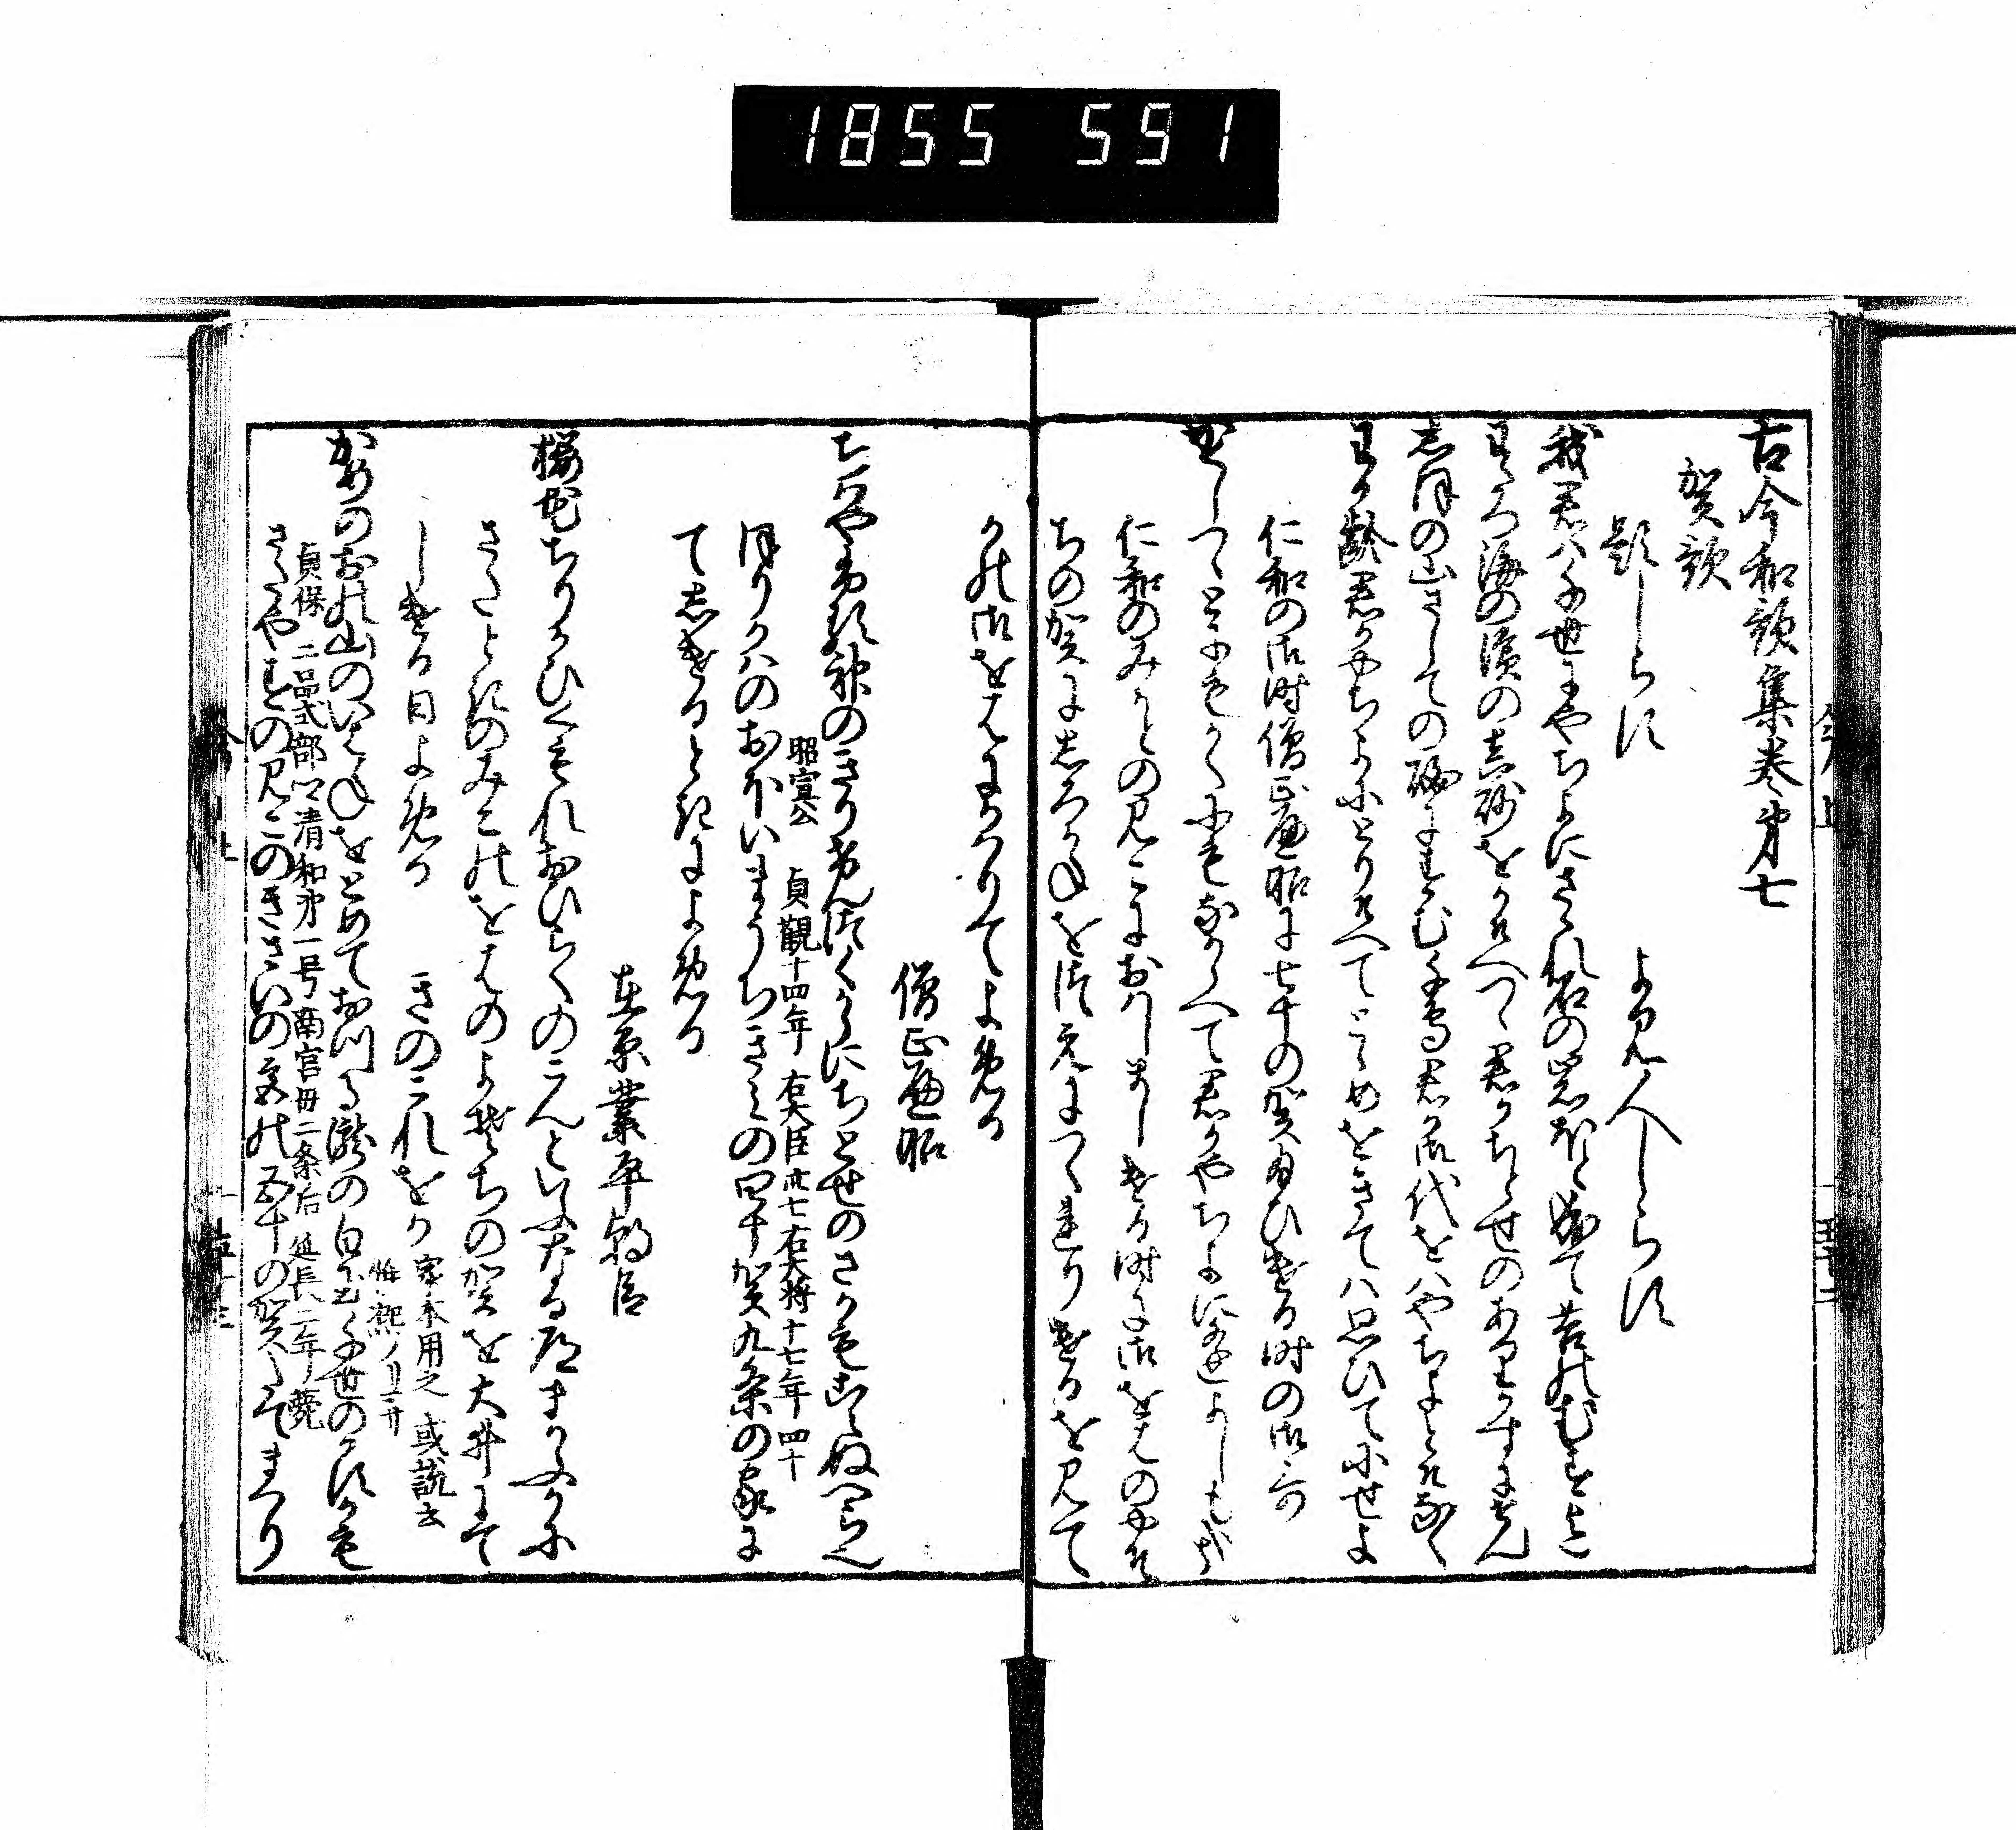 1855 591
古今和歌集巻第七
賀歌
題しらす
よみ人しらす
我君は千世にやちよにさゝれ石の巌ほと成て苔のむすまて
わたつ海の濱の真砂をかそへつゝ君かちとせのあり数にせん
志ほの山さしての磯にすむ千鳥君か御代をはやちよとそ鳴
わか齢君かやちよにとりそへてとゝめをきては思ひてにせよ
仁和の御時僧正遍昭に七十の賀給ひける時の御哥
かくしつゝとにもかくにもなからへて君かやちよにあふよしもかな
仁和のみかとの見こにおはしましける時に御をはのやそ
ちの賀に志ろかねを徒えにつくれりけるを見て
かの御をはにかはりてよめる
僧正遍昭
ちはやふる神のきりけん徒くからにちとせのさかもこえぬへらん
昭宣公 貞観十四年右大臣卅七右大将十七年四十
ほりかはのおほいまうちきみの四十賀九条の家に
て志ける時によめる
在原業平朝臣
桜花ちりかひくもれおひらくのこんといふなる道まかふかに
さたときのみこのをはのよそちの賀を大井にて
しける日よめる
きのこれをか
家本用之或説云
かめのおの山のいはねをとめておつる瀧の白玉千世のかすかも
貞保 二品式部卿清和第一号南宮母二条后延長二年薨
さたやすの見このきさいの宮の五十の賀たてまつり